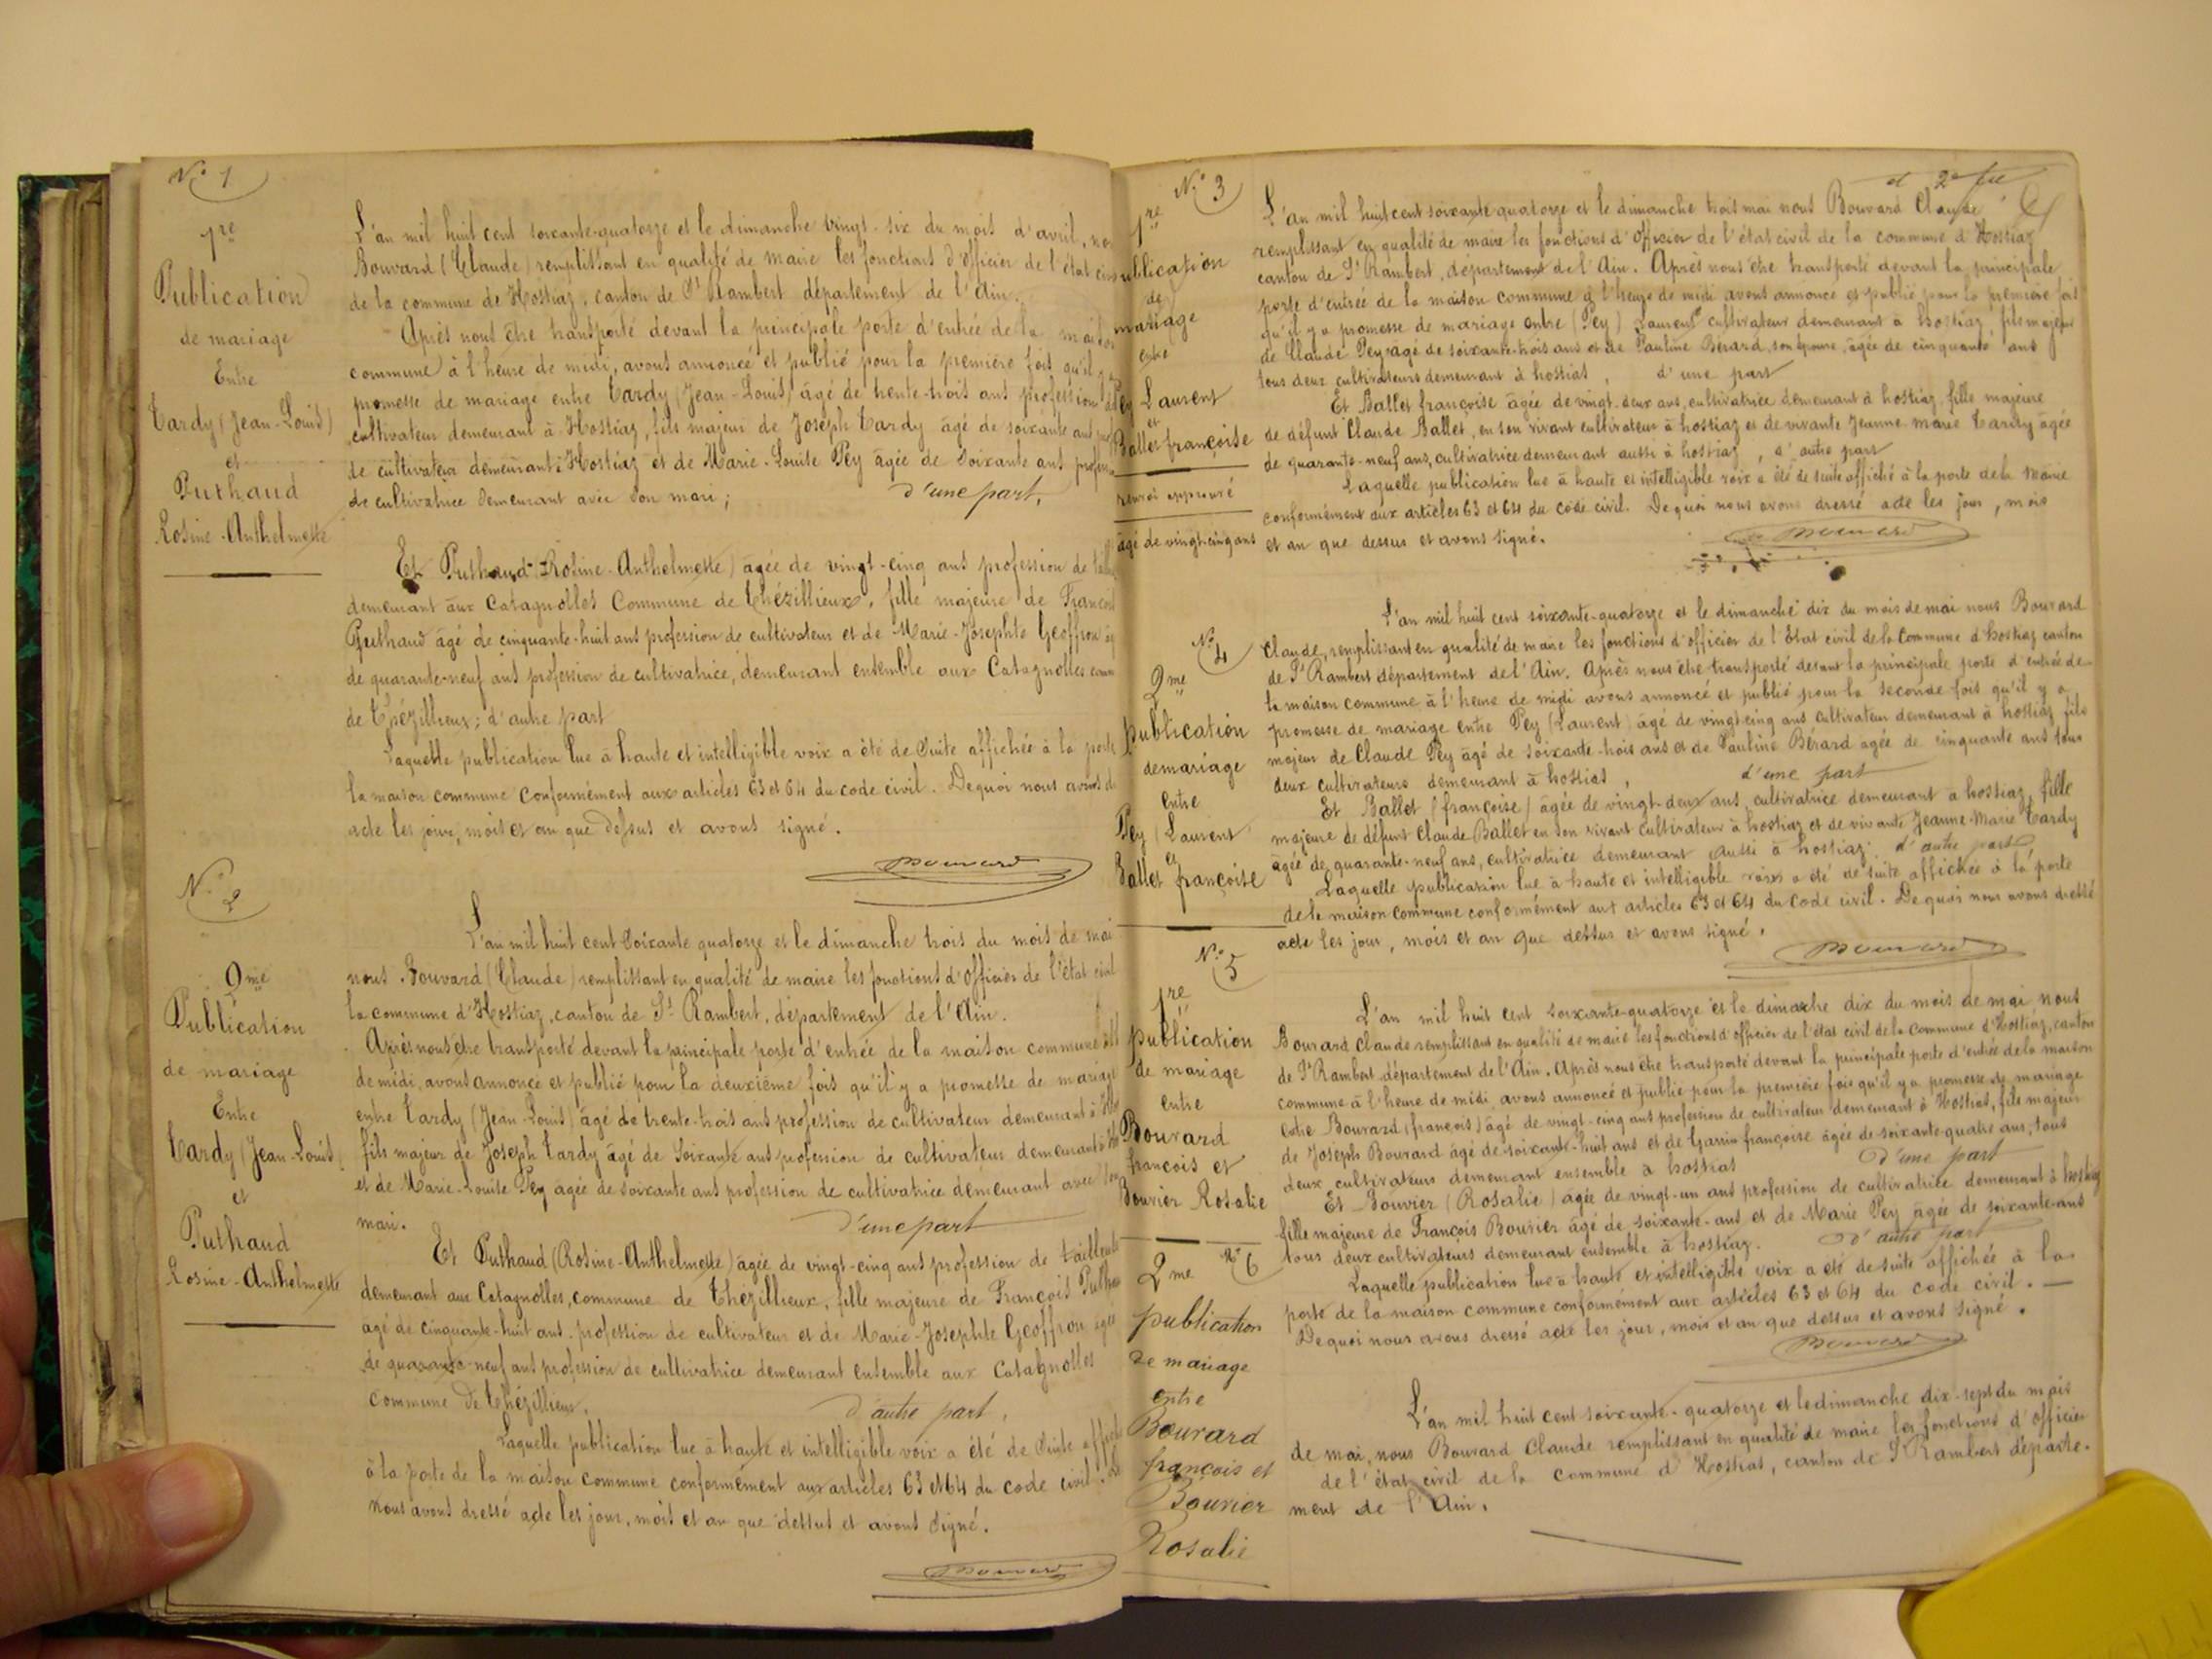 N° 1
1re
Publication
de mariage
Entre
Tardy (Jean-Louis)
et
Puthaud
Rosine-Anthelmette
L'an mil huit cent soixante-quatorze et le dimanche vingt-six du mois d'avril,
Bouvard (Claude) remplissant en qualité de maire les fonctions d'officier de l'état
de la commune de Hostiaz, canton de St Rambert département de l'Ain.
Après nous être transporté devant la principale porte d'entrée de la maison
commune à l'heure de midi, avons annoncé et publié pour la première fois qu'il
promesse de mariage entre Tardy (Jean-Louis) âgé de trente-trois ans profession
cultivateur demeurant à Hostiaz, fils majeur de Joseph Tardy âgé de soixante ans
de cultivateur demeurant à Hostiaz et de Marie-Louise Pey âgée de soixante ans
de cultivatrice demeurant avec son mari; d'une part,
Et Puthaud (Rosine-Anthelmette) âgée de vingt-cinq ans profession de
demeurant aux Catagnolles Commune de Thézillieux, fille majeure de
Puthaud âgé de cinquante-huit ans profession de cultivateur et de Marie-Josephte Geoffron
de quarante-neuf ans profession de cultivatrice, demeurant ensemble aux Catagnolles
de Thézillieux; d'autre part
Laquelle publication lue à haute et intelligible voix a été de suite affichée à la porte
la maison commune conformément aux articles 63 et 64 du code civil. De quoi nous avons
acte les jour, mois et an que dessus et avons signé.
Bouvard
N° 2
2me
Publication
de mariage
Entre
Tardy (Jean-Louis)
et
Puthaud
Rosine-Anthelmette
L'an mil huit cent soixante quatorze et le dimanche trois du mois de mai
nous Bouvard (Claude) remplissant en qualité de maire les fonctions d'officier de l'état civil
la commune d'Hostiaz, canton de St Rambert, département de l'Ain.
Après nous être transporté devant la principale porte d'entrée de la maison commune
de midi, avons annoncé et publié pour la deuxième fois qu'il y a promesse de mariage
entre Tardy (Jean-Louis) âgé de trente-trois ans profession de cultivateur demeurant à
fils majeur de Joseph Tardy âgé de soixante ans profession de cultivateur demeurant
et de Marie-Louise Pey âgée de soixante ans profession de cultivatrice demeurant avec son
mari. d'une part
Et Puthaud (Rosine-Anthelmette) âgée de vingt-cinq ans profession de tailleuse
demeurant aux Catagnolles, commune de Thézillieux, fille majeure de François
âgé de cinquante-huit ans profession de cultivateur et de Marie-Josephte Geoffron âgée
de quarante-neuf ans profession de cultivatrice demeurant ensemble aux Catagnolles
commune de Thézillieux, d'autre part,
Laquelle publication lue à haute et intelligible voix a été de suite
à la porte de la maison commune conformément aux articles 63 et 64 du code civil.
nous avons dressé acte les jour, mois et an que dessus et avons signé.
Bouvard
N° 3
1re
publication
de
mariage
entre
Pey Laurent
et
Ballet françoise
renvoi approuvé
âgé de vingt-cinq ans
et 2e
L'an mil huit cent soixante quatorze et le dimanche trois mai nous Bouvard Claude
remplissant en qualité de maire les fonctions d'officier de l'état civil de la commune d'Hostiaz
canton de St Rambert, département de l'Ain. Après nous être transporté devant la principale
porte d'entrée de la maison commune à l'heure de midi avons annoncé et publié pour la première fois
qu'il y a promesse de mariage entre (Pey) Laurent cultivateur demeurant à hostiaz, fils majeur
de Claude Pey âgé de soixante-trois ans et de Pauline Bérard, son épouse, âgée de cinquante ans
tous deux cultivateurs demeurant à hostias, d'une part
Et Ballet françoise âgée de vingt-deux ans, cultivatrice demeurant à hostiaz, fille majeure
de défunt Claude Ballet, en son vivant cultivateur à hostiaz et de vivante Jeanne-marie Tardy âgée
de quarante-neuf ans, cultivatrice demeurant aussi à hostiaz, d'autre part
Laquelle publication lue à haute et intelligible voix a été de suite affiché à la porte de la Mairie
conformément aux articles 63 et 64 du code civil. De quoi nous avons dressé acte les jour, mois
et an que dessus et avons signé.
Bouvard
N° 4
2me
publication
de mariage
entre
Pey (Laurent
et
Ballet françoise
L'an mil huit cent soixante-quatorze et le dimanche dix du mois de mai nous Bouvard
Claude, remplissant en qualité de maire les fonctions d'officier de l'état civil de la Commune d'hostiaz canton
de St Rambert département de l'Ain. Après nous être transporté devant la principale porte d'entrée de
la maison commune à l'heure de midi avons annoncé et publié pour la seconde fois qu'il y a
promesse de mariage entre Pey (Laurent) âgé de vingt-cinq ans cultivateur demeurant à hostiaz fils
majeur de Claude Pey âgé de soixante-trois ans et de Pauline Bérard âgée de cinquante ans tous
deux cultivateurs demeurant à hostias, d'une part
Et Ballet (françoise) âgée de vingt-deux ans, cultivatrice demeurant à hostiaz, fille
majeure de défunt Claude Ballet en son vivant cultivateur à hostiaz et de vivante Jeanne-Marie Tardy
âgée de quarante-neuf ans, cultivatrice demeurant aussi à hostiaz d'autre part,
Laquelle publication lue à haute et intelligible voix a été de suite affichée à la porte
de la maison commune conformément aux articles 63 et 64 du code civil. De quoi nous avons dressé
acte les jour, mois et an que dessus et avons signé.
Bouvard
N° 5
1re
publication
de mariage
entre
Bouvard
françois et
Bouvier Rosalie
L'an mil huit cent soixante-quatorze et le dimanche dix du mois de mai nous
Bouvard Claude remplissant en qualité de maire les fonctions d'officier de l'état civil de la Commune d'Hostiaz, canton
de St Rambert, département de l'Ain. Après nous être transporté devant la principale porte d'entrée de la maison
commune à l'heure de midi, avons annoncé et publié pour la première fois qu'il y a promesse de mariage
entre Bouvard (françois) âgé de vingt-cinq ans profession de cultivateur demeurant à Hostias, fils majeur
de Joseph Bouvard âgé de soixante-huit ans et de Garrin françoise âgée de soixante-quatre ans, tous
deux cultivateurs demeurant ensemble à hostias d'une part
Et Bouvier (Rosalie) âgée de vingt-un ans profession de cultivatrice demeurant à hostiaz
fille majeure de François Bouvier âgé de soixante-ans et de Marie Pey âgée de soixante-ans
tous deux cultivateurs demeurant ensemble à hostiaz. d'autre part
Laquelle publication lue à haute et intelligible voix a été de suite affichée à la
porte de la maison commune conformément aux articles 63 et 64 du code civil.
De quoi nous avons dressé acte les jour, mois et an que dessus et avons signé.
Bouvard
N° 6
2me
publication
de mariage
entre
Bouvard
françois et
Bouvier
Rosalie
L'an mil huit cent soixante-quatorze et le dimanche dix-sept du mois
de mai, nous Bouvard Claude remplissant en qualité de maire les fonctions d'officier
de l'état civil de la commune d'Hostias, canton de St Rambert départe-
ment de l'Ain.